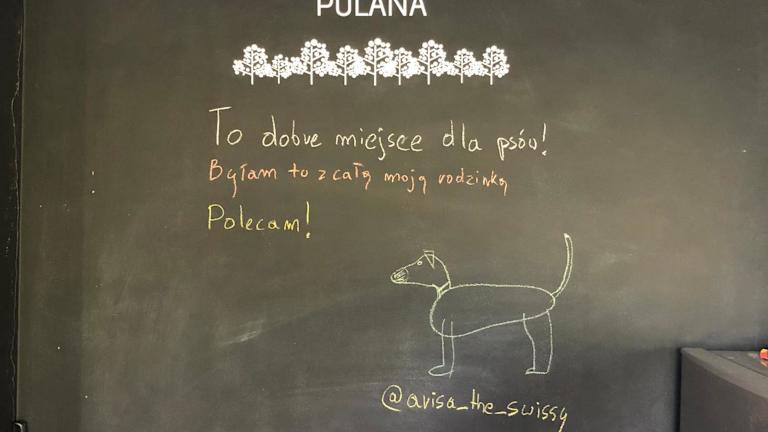 POLANA
To dobre miejsce dla psów!
Byłam tu z całą moją rodzinką
Polecam!
@arisa_the_swissy